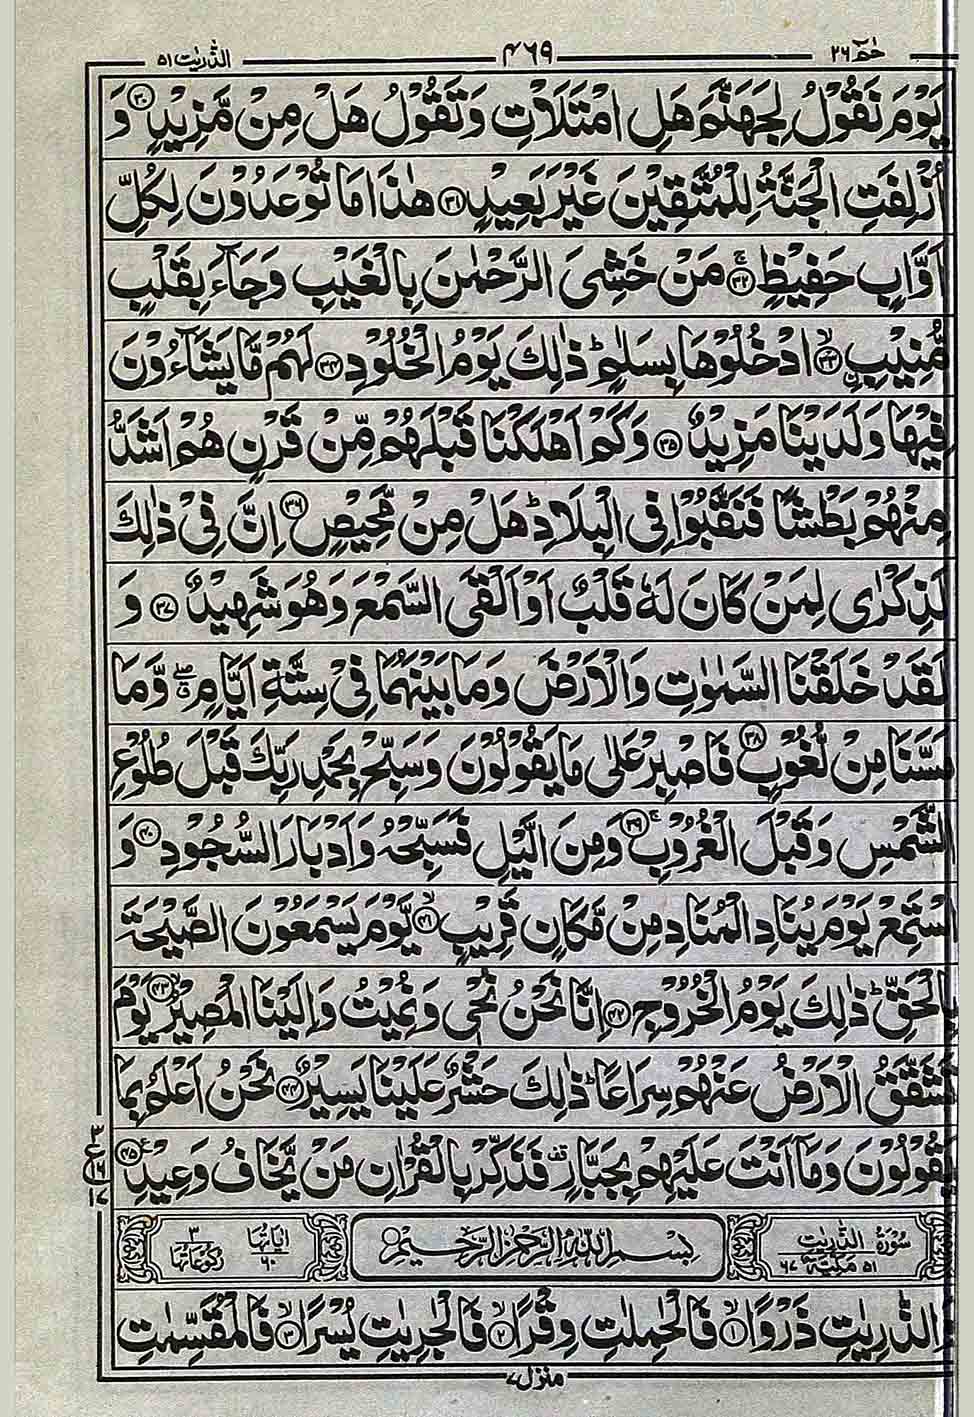 حٰمٓ ٢٦ ٤٦٩ الذّٰریٰت ٥١
یَوۡمَ نَقُوۡلُ لِجَهَنَّمَ هَلِ امۡتَلَاۡتِ وَتَقُوۡلُ هَلۡ مِنۡ مَّزِیۡدٍ ﴿۳۰﴾ وَ
اُزۡلِفَتِ الۡجَنَّةُ لِلۡمُتَّقِیۡنَ غَیۡرَ بَعِیۡدٍ ﴿۳۱﴾ هٰذَا مَا تُوۡعَدُوۡنَ لِکُلِّ
اَوَّابٍ حَفِیۡظٍ ۚ﴿۳۲﴾ مَنۡ خَشِیَ الرَّحۡمٰنَ بِالۡغَیۡبِ وَجَآءَ بِقَلۡبٍ
مُّنِیۡبِ ۙ﴿۳۳﴾ ادۡخُلُوۡهَا بِسَلٰمٍ ؕ ذٰلِكَ یَوۡمُ الۡخُلُوۡدِ ﴿۳۴﴾ لَهُمۡ مَّا یَشَآءُوۡنَ
فِیۡهَا وَلَدَیۡنَا مَزِیۡدٌ ﴿۳۵﴾ وَکَمۡ اَهۡلَکۡنَا قَبۡلَهُمۡ مِّنۡ قَرۡنٍ هُمۡ اَشَدُّ
مِنۡهُمۡ بَطۡشًا فَنَقَّبُوۡا فِی الۡبِلَادِ ؕ هَلۡ مِنۡ مَّحِیۡصٍ ﴿۳۶﴾ اِنَّ فِیۡ ذٰلِكَ
لَذِکۡرٰی لِمَنۡ کَانَ لَهٗ قَلۡبٌ اَوۡ اَلۡقَی السَّمۡعَ وَهُوَ شَهِیۡدٌ ﴿۳۷﴾ وَ
لَقَدۡ خَلَقۡنَا السَّمٰوٰتِ وَالۡاَرۡضَ وَمَا بَیۡنَهُمَا فِیۡ سِتَّةِ اَیَّامٍ ۖق وَّمَا
مَسَّنَا مِنۡ لُّغُوۡبٍ ﴿۳۸﴾ فَاصۡبِرۡ عَلٰی مَا یَقُوۡلُوۡنَ وَسَبِّحۡ بِحَمۡدِ رَبِّكَ قَبۡلَ طُلُوۡعِ
الشَّمۡسِ وَقَبۡلَ الۡغُرُوۡبِ ۚ﴿۳۹﴾ وَمِنَ الَّیۡلِ فَسَبِّحۡهُ وَاَدۡبَارَ السُّجُوۡدِ ﴿۴۰﴾ وَ
اسۡتَمِعۡ یَوۡمَ یُنَادِ الۡمُنَادِ مِنۡ مَّکَانٍ قَرِیۡبٍ ۙ﴿۴۱﴾ یَّوۡمَ یَسۡمَعُوۡنَ الصَّیۡحَةَ
بِالۡحَقِّ ؕ ذٰلِكَ یَوۡمُ الۡخُرُوۡجِ ﴿۴۲﴾ اِنَّا نَحۡنُ نُحۡیٖ وَنُمِیۡتُ وَاِلَیۡنَا الۡمَصِیۡرُ ۙ﴿۴۳﴾ یَوۡمَ
تَشَقَّقُ الۡاَرۡضُ عَنۡهُمۡ سِرَاعًا ؕ ذٰلِكَ حَشۡرٌ عَلَیۡنَا یَسِیۡرٌ ﴿۴۴﴾ نَحۡنُ اَعۡلَمُ بِمَا
یَقُوۡلُوۡنَ وَمَاۤ اَنۡتَ عَلَیۡهِمۡ بِجَبَّارٍ قف فَذَکِّرۡ بِالۡقُرۡاٰنِ مَنۡ یَّخَافُ وَعِیۡدِ ﴿۴۵﴾ ع
٣
ع ١٦
١٧
سُوۡرَةُ الذّٰرِیٰتِ ٥١ مَکِّیَّةٌ ٦٧ بِسۡمِ اللّٰهِ الرَّحۡمٰنِ الرَّحِیۡمِ اٰیَاتُهَا ٦٠ رُکُوۡعَاتُهَا ٣
وَالذّٰرِیٰتِ ذَرۡوًا ۙ﴿۱﴾ فَالۡحٰمِلٰتِ وِقۡرًا ۙ﴿۲﴾ فَالۡجٰرِیٰتِ یُسۡرًا ۙ﴿۳﴾ فَالۡمُقَسِّمٰتِ
منزل ٧